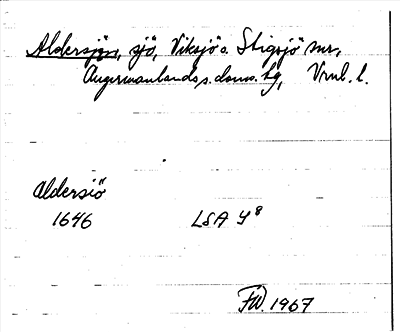 Aldersjön, sjö, Viksjö o. Stigsjö snr,
Ångermanlands s. doms. hg, Vrnl. l.
aldersiö
1646 LSA Y8
FW. 1967